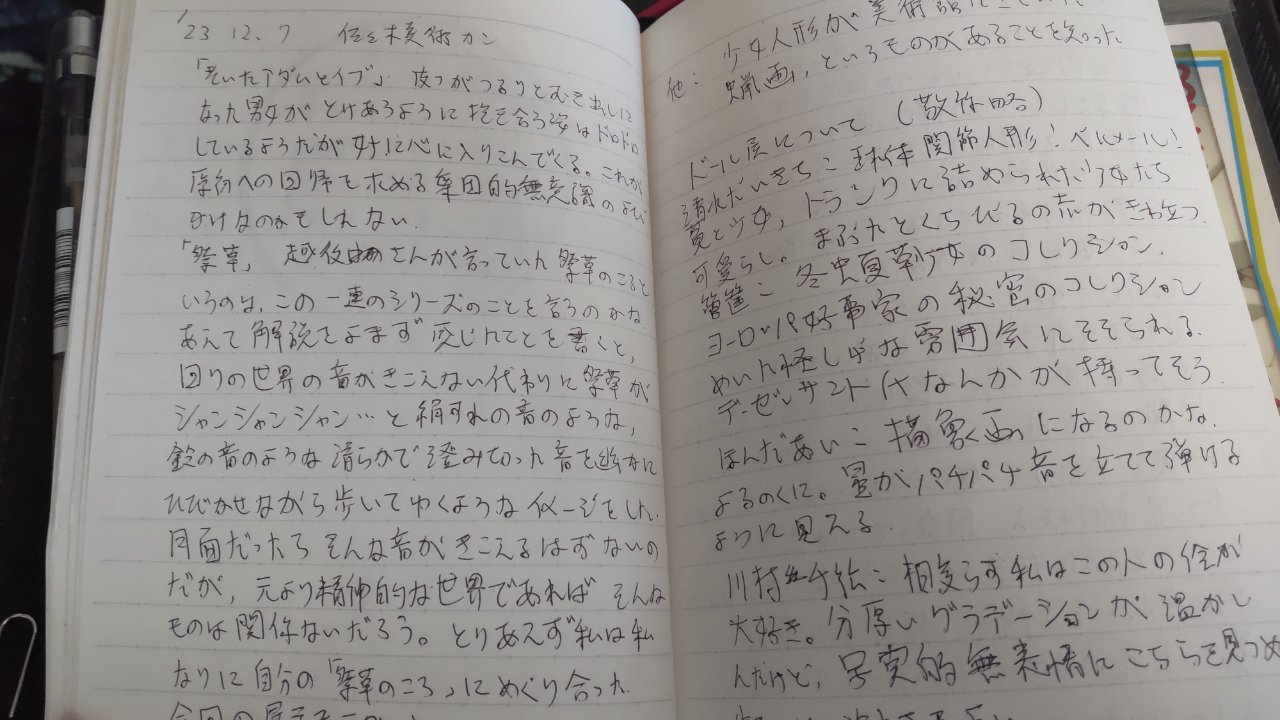 '23 12.7 佐々木美術カン
「老いたアダムとイブ」 皮フがつるりとむき出しに
なった男女が とけあうように抱き合う姿はドロドロ
しているようだが妙に心に入りこんでくる。これが
原初への回帰を求める集団的無意識の
かけなのかもしれない.
「祭草」 さんが言っていた祭草のころと
いうのは、この一連のシリーズのことを言うのかな.
あえて解説をよまず 感じたことを書くと,
回りの世界の音がきこえない代わりに祭草が
シャンシャンシャン…と絹ずれの音のような,
鈴の音のような清らかで澄み切った音を幽かに
ひびかせながら歩いてゆくようなイメージをした.
月面だったらそんな音がきこえるはずないの
だが, 元より精神的な世界であれば そんな
ものは関係ないだろう。とりあえず私は私
なりに自分の「祭草のころ」にめぐり合った
今回の展示
少女人形が美術品
他: 「蝋画」, というものがあることを知った
ドール展について (敬称略)
清水だいきち: 球体関節人形! ベルメール!
少女, トランクに詰められた少女たち
可愛らし。まぶたとくちびるの赤がきわ立つ.
冬虫夏草少女のコレクション.
ヨーロッパ好事家の秘密のコレクション
めいた怪しげな雰囲気にそそられる.
デ・ゼッサントなんかが持ってそう.
ほんだあい: 描象画になるのかな.
よるのくに。星がパチパチ音を立てて弾ける
ように見える.
川村 絵: 相変らず私はこの人の絵が
大好き。分厚いグラデーションが温かい
んだけど, 写実的無表情にこちらを見つめ